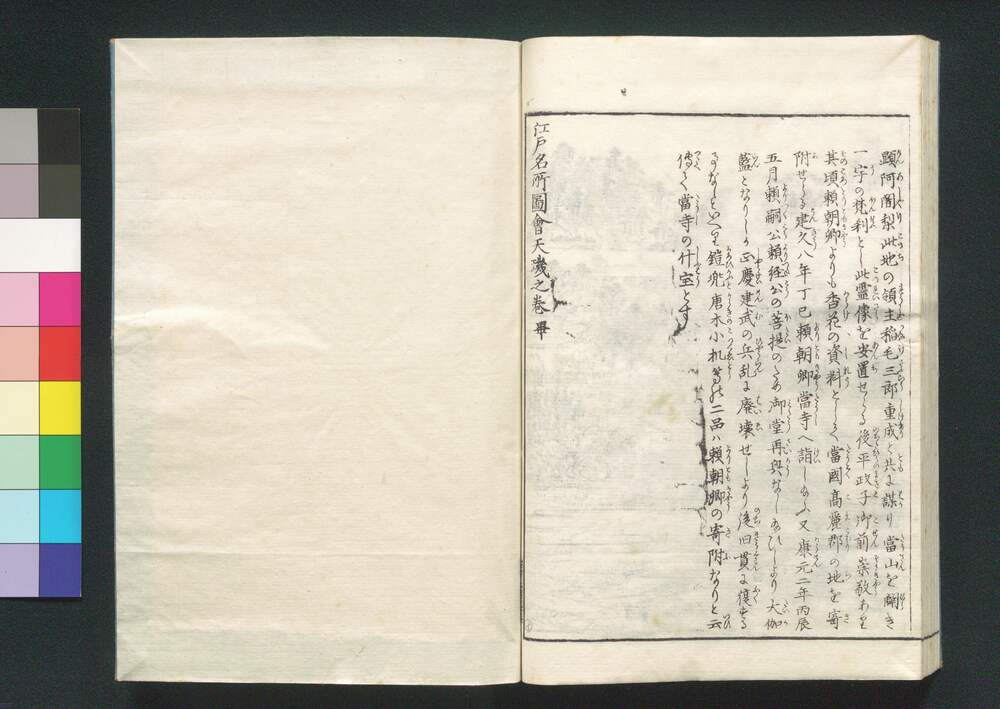 顕阿闍梨此地の領主稲毛三郎重成と共に謀り當山を闢き
一宇の梵刹とし此霊像を安置せらる後平政子御前崇敬あり
其頃頼朝卿よりも香花の資料として當國高麗郡の地を寄
附せらる建久八年丁巳頼朝卿當寺へ詣し給ふ又康元二年丙辰
五月頼嗣公頼経公の菩提のため御堂再興なし給ひしより大伽
藍となりしか正慶建武の兵乱に廃壊せしより後旧貫に復する
事なしといへり鎧兜唐木小机等の二品ハ頼朝卿の寄附なりと云
傳へて當寺の什宝とす
江戸名所圖會天璣之巻 畢